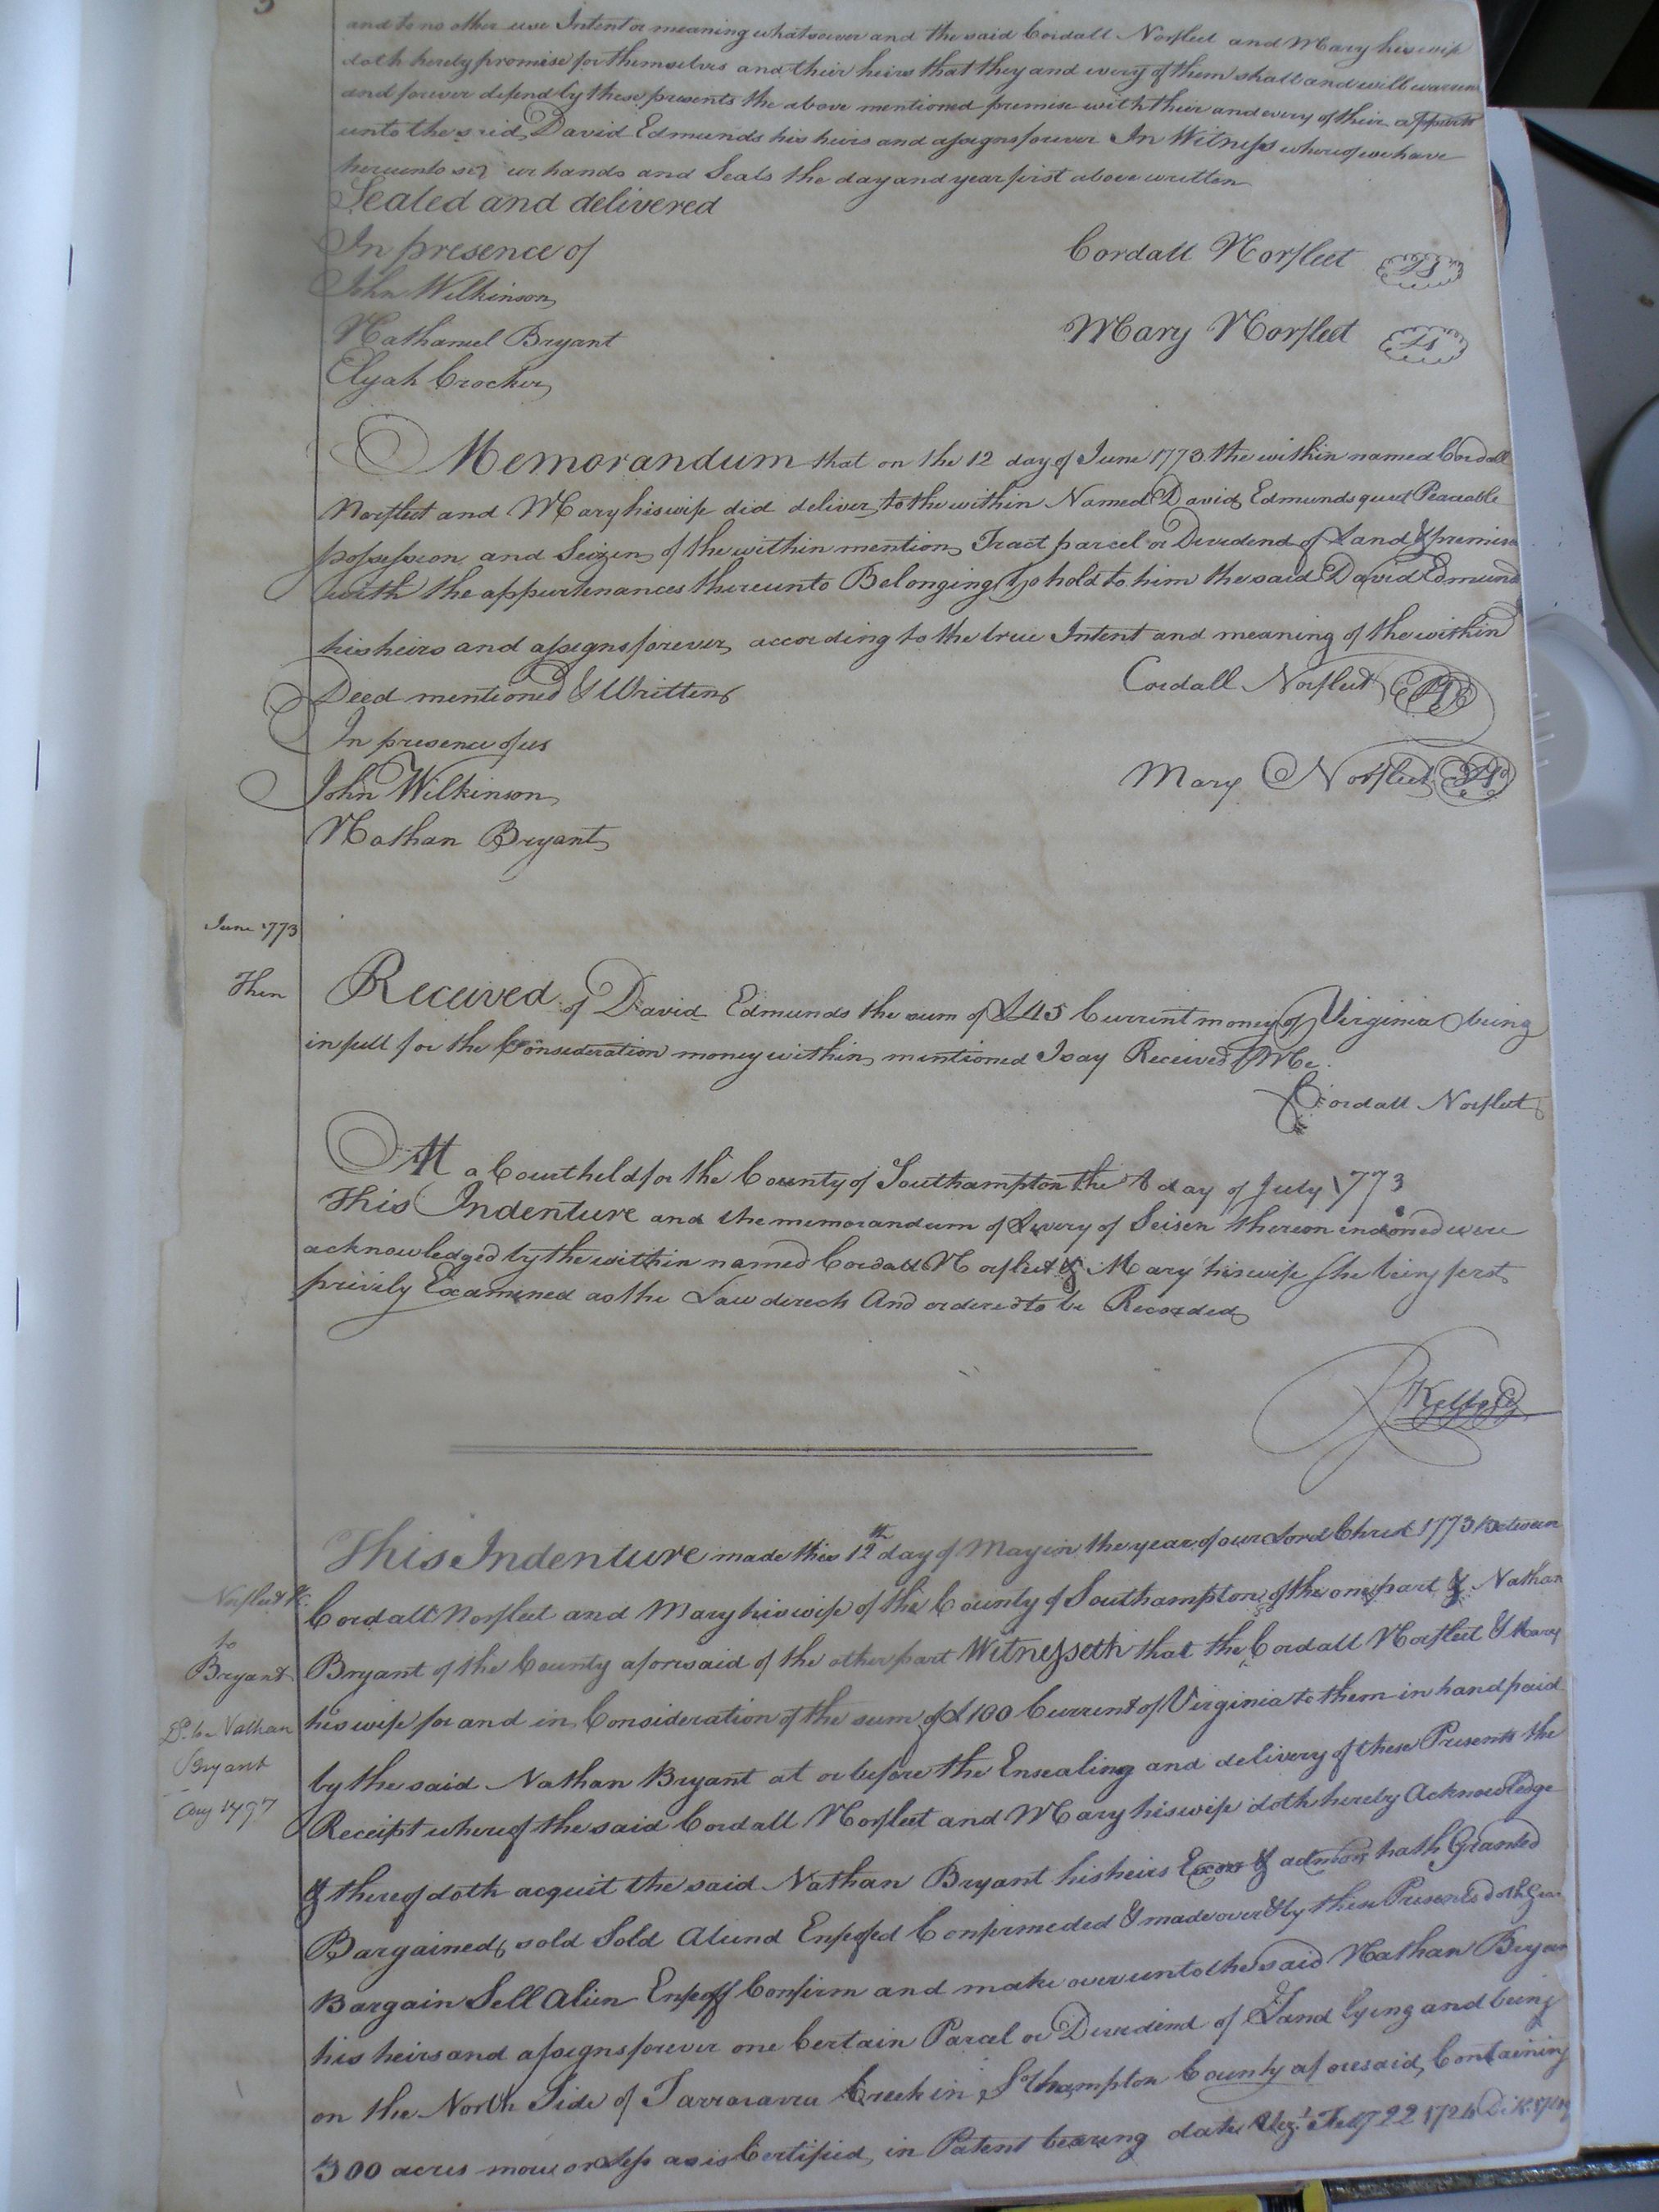 and to no other use Intent or meaning whatsoever and the said Cordall Norfleet and Mary his wife
doth hereby promise for themselves and their heirs that they and every of them shall and will warran
and forever defend by these presents the above mentioned premise with their and every of their appurts
unto the said David Edmunds his heirs and assigns forever In Witness whereof we have
hereunto set ur hands and Seals the day and year first above written
Sealed and delivered
In presence of
Cordall Norfleet LS
John Wilkinson
Nathaniel Bryant
Mary Norfleet LS
Elijah Crocker
Memorandum that on the 12 day of June 1773 the within named Cordall
Norfleet and Mary his wife did deliver to the within Named David Edmunds quiet Peaceable
possession and Seizen of the within mention Tract parcel or Devidend of Land & premise
with the appurtenances thereunto Belonging To hold to him the said David Edmund
his heirs and assigns forever according to the true Intent and meaning of the within
Deed mentioned & Written
Cordall Norfleet LS
In presence of us
John Wilkinson
Mary Norfleet LS
Nathan Bryant
June 1773
Then
Received of David Edmunds the sum of £45 Current money of Virginia being
in full for the Consideration money within mentioned I say Received Me
Cordall Norfleet
At a Court held for the County of Southampton the 8 day of July 1773
This Indenture and the memorandum of Livery of Seisen thereon endorsed were
acknowledged by the within named Cordall Norfleet & Mary his wife she being first
privily Examined as the Law derects And ordered to be Recorded
Kello
This Indenture made this 12th day of May in the year of our Lord Christ 1773 Between
Norfleet
Cordall Norfleet and Mary his wife of the County of Southampton of the one part & Nathan
to
Bryant
Bryant of the County aforesaid of the other part Witnesseth that the Cordall Norfleet & Mary
Nathan
his wife for and in Consideration of the sum of £100 Current of Virginia to them in hand paid
Bryant
by the said Nathan Bryant at or before the Ensealing and delivery of these Presents the
Aug 1797
Receipt whereof the said Cordall Norfleet and Mary his wife doth hereby Acknowledge
& thereof doth acquit the said Nathan Bryant his heirs Execors & admors hath Granted
Bargained sold Sold Aliend Enfeffed Confirmeded & made over & by these Presents doth
Bargain Sell Alien Enfeff Confirm and make over unto the said Nathan Bryan
his heirs and assigns forever one Certain Parcel or Devidend of Land lying and being
on the North Side of Tarrorarra Creek in Sothampton County aforesaid Containing
300 acres more or less as is Certified in Patent bearing date 22